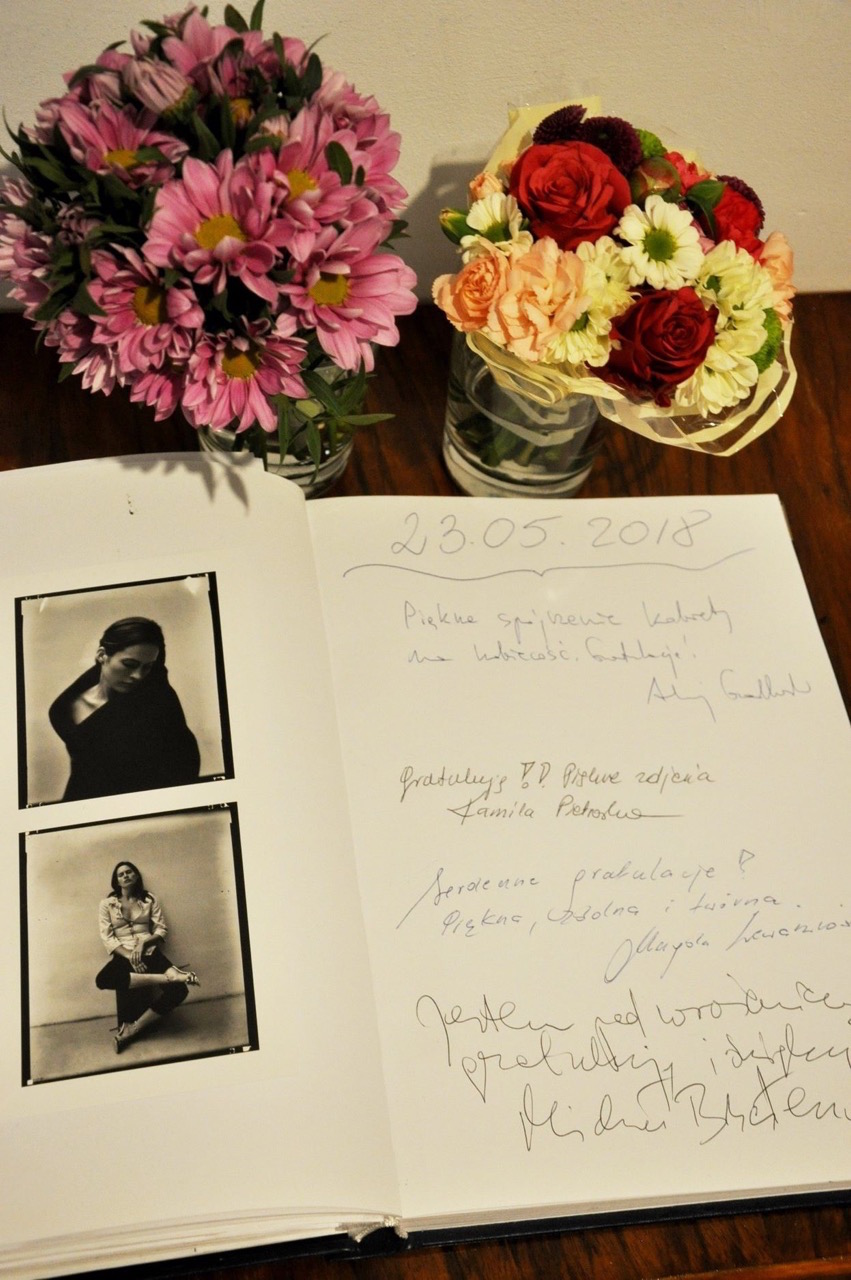 23.05.2018
Piękne spojrzenie kobiety
na kobiecość. Gratulacje!
gratuluję !! Piękne zdjęcia
Kamila
Serdeczne gratulacje!
Piękna, zdolna i twórcza.
Magda
Jestem pod wrażeniem
gratuluję i dziękuję